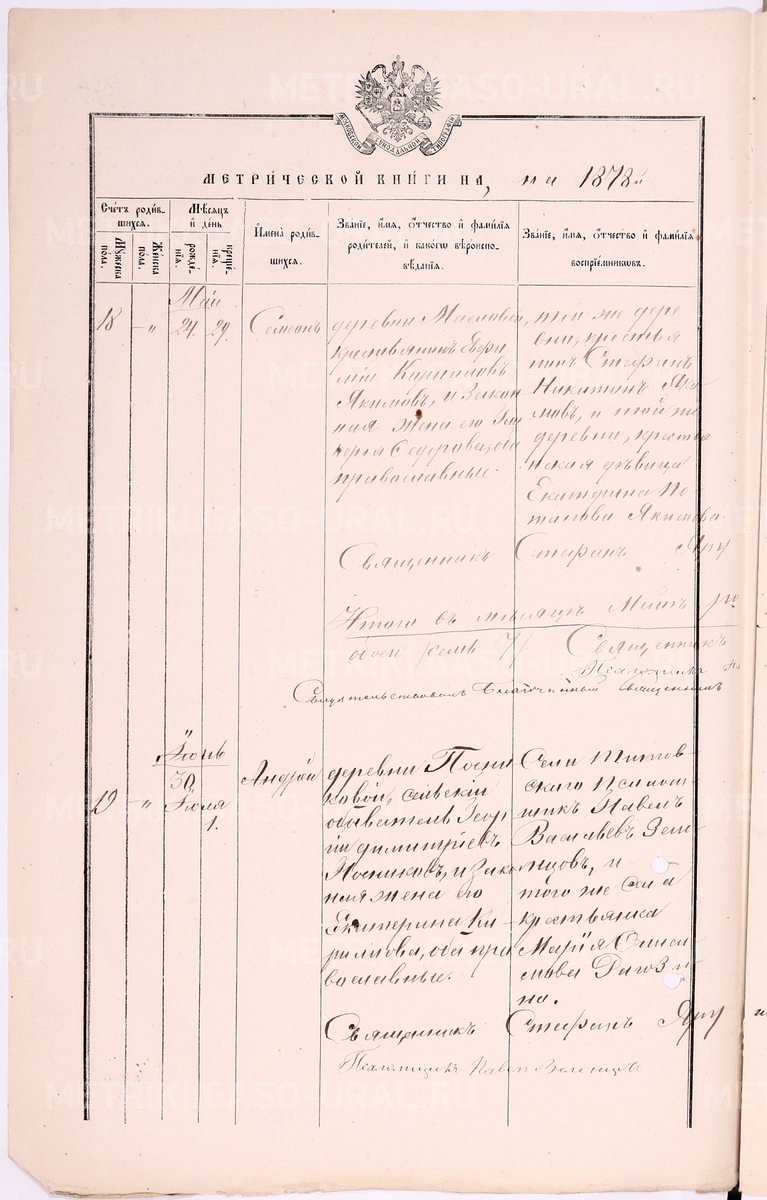 МОСКОВСКОЙ СѴНОДАЛЬНОЙ ТИПОГРАФІИ
МЕТРИ́ЧЕСКОЙ КНИ́ГИ НА, на 1878й
Сче́тъ роди́в-
шихся.
Му́жеска
по́ла.
Же́нска
по́ла.
Мѣ́сяцъ
и҆ де́нь
рожде́-
нїѧ.
креще́-
нїѧ.
И҆мена̀ роди́в-
шихся.
Зва́нїе, и҆́мѧ, ѻ҆́тчество и҆ фами́лїѧ
роди́телей, и҆ како́гѡ вѣроиспо-
вѣ́данїѧ.
Зва́нїе, и҆́мѧ, ѻ҆́тчество и҆ фами́лїѧ
воспрїе́мниковъ.
Май
18
-"
24.
29.
Семеонъ
деревни Масловой,
крестьянинъ Евфи
мій Кириловъ
Якимовъ, и закон
ная жена его Гли
керія Сидорова, оба
православные.
той же дере
вни, крестья
нинъ Стефанъ
Никитинъ Яки
мовъ, и той же
деревни, крестья
нская дѣвица
Екатерина По
тапова Якимова.
Священникъ Стефанъ Яру
Итого въ мѣсяцѣ Маіѣ ро
обоего /семь 7/ Священникъ
Псаломщикъ
Свидѣтельствовалъ Благочинный Священникъ
Іюнь
30
Іюля
1.
19
-"
Андрей
деревни Посни
ковой, сельскій
обыватель Геор
гій Димитріевъ
Посниковъ, и зако
нная жена его
Екатерина Ки-
рилова, оба пра
вославные.
Села Титов-
скаго Псалом-
щикъ Павелъ
Васильевъ Зеле-
нцовъ, и
того же села
крестьянка
МаріяОниси-
мова Рагози
на.
Священникъ Стефанъ Яру
Псаломщикъ Павелъ Зеленцовъ
METRIKI.GASO-URAL.RU